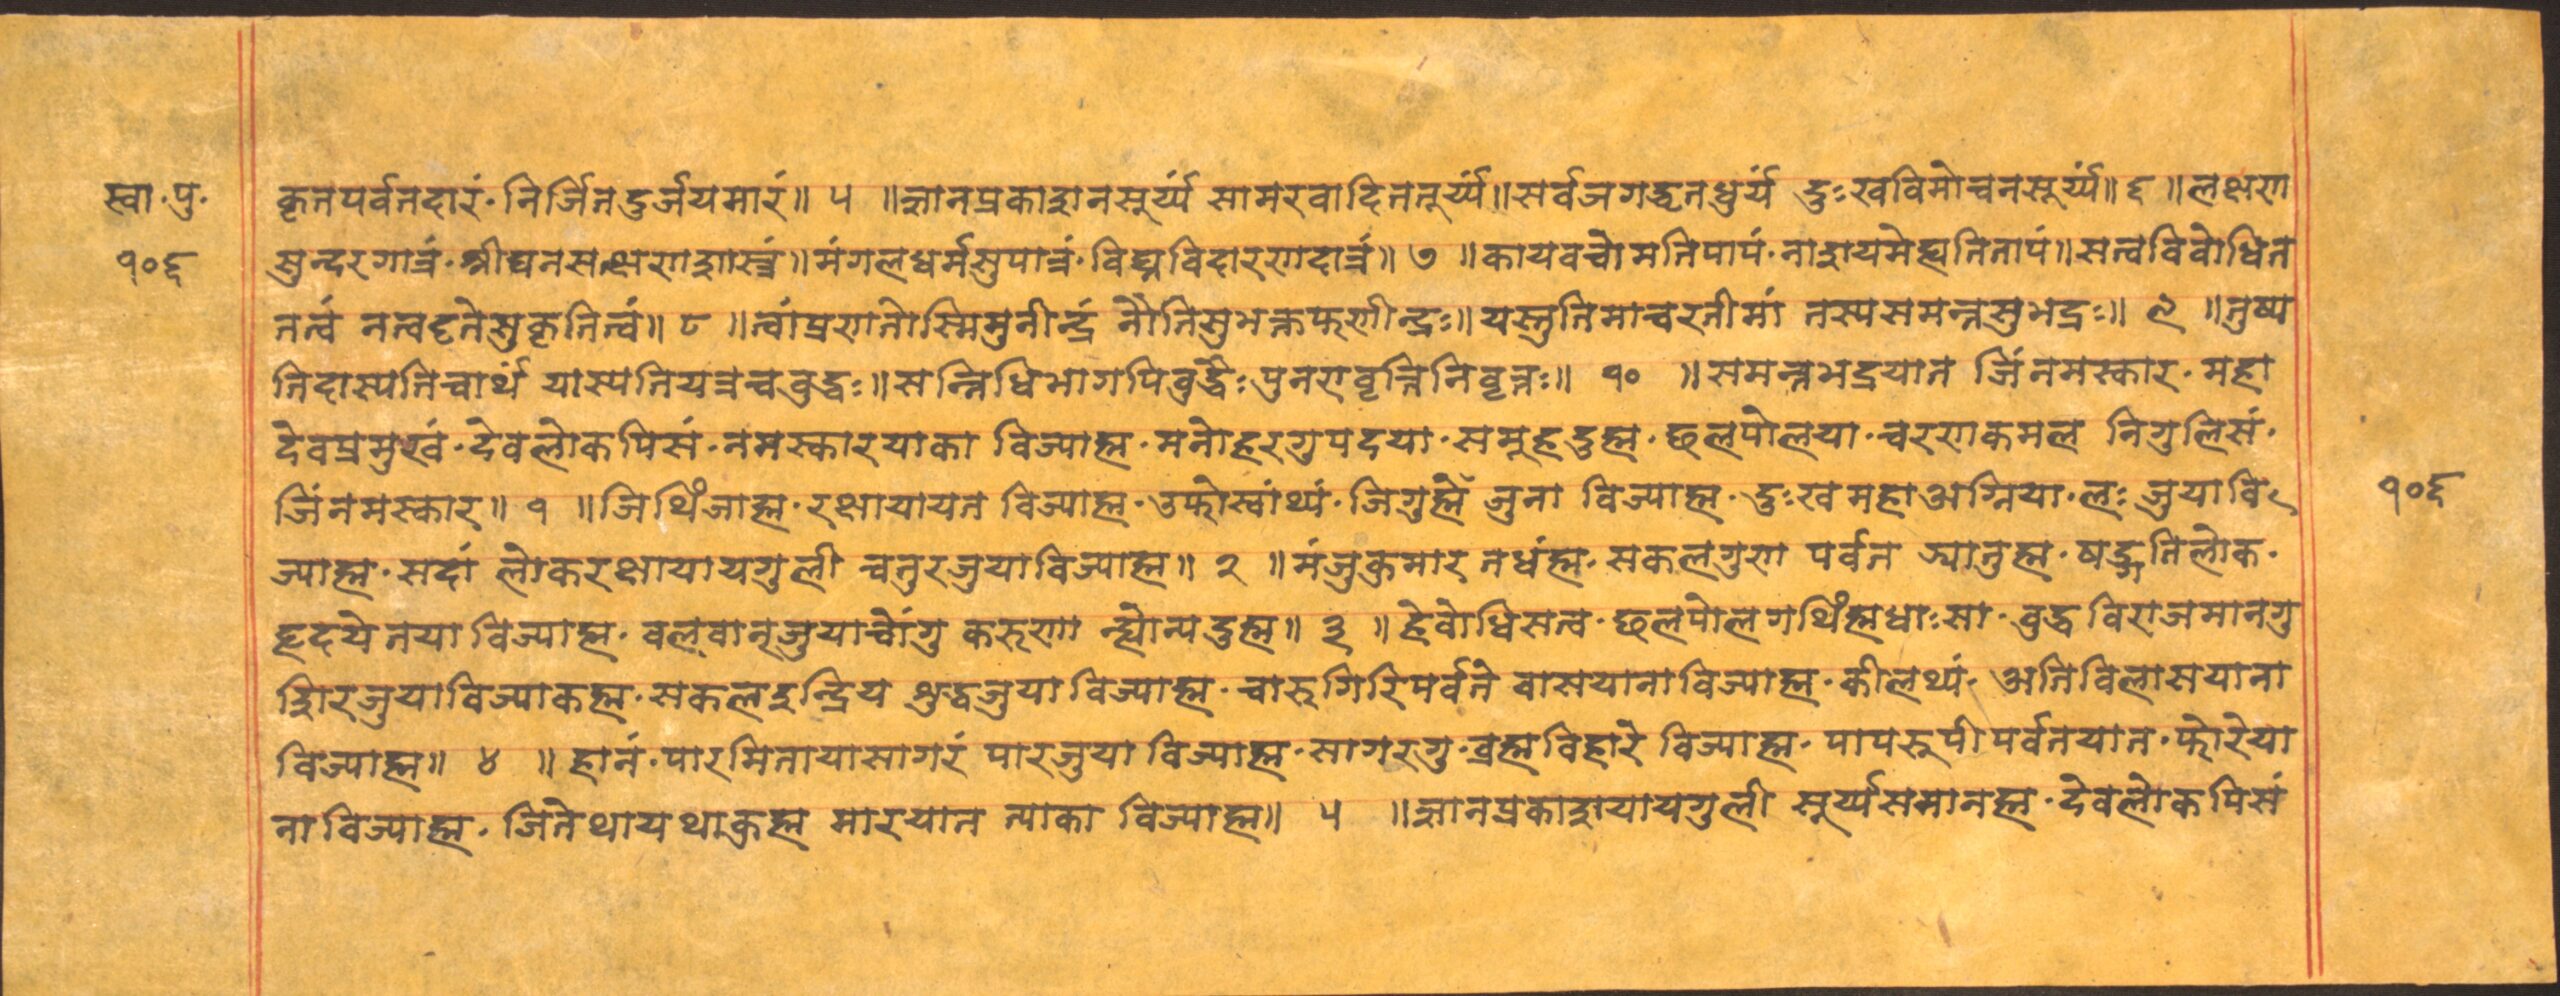 स्वा॰ पु॰
१०६
कृतपर्वतदारं॰ निर्जितदुर्जयमारं॥ ५ ॥ज्ञानप्रकाशनसूर्य्यं सामरवादिततूर्य्यं॥सर्वजगद्धृतधुर्यं दुःखविमोचनसूर्य्यं॥ ६ ॥लक्षण
सुन्दरगात्रं॰ श्रीघनसत्क्षणशास्त्रं॥मंगलधर्मसुपात्रं॰ विघ्नविदारणदात्रं॥ ७ ॥कायवचोमतिपापं॰ नाशयमेह्यतितापं॥सत्वविवोधित
तत्वं नत्वदृतेसुकृतित्वं॥ ८ ॥त्वांप्रणतोस्मिमुनीन्द्रं नौतिसुभक्तफणीन्द्रः॥यस्तुतिमाचरतीमां तस्यसमन्तसुभद्रः॥ ९ ॥तुष्य
तिदास्यतिचार्थं यास्यतियत्रचवुद्धः॥सन्निधिभागपिवुर्द्धेः पुनरावृत्तिनिवृत्तः॥ १० ॥समन्तभद्रयात जिंनमस्कार॰ महा
देवप्रमुखं॰ देवलोकपिसं॰ नमस्कारयाका विज्याह्म॰ मनोहरगुपदया॰ समूहदुह्म॰ छलपोलया॰ चरणकमल निगुलिसं॰
जिंनमस्कार॥ १ ॥जिथिंजाह्म॰ रक्षायायत विज्याह्म॰ उफोस्वांथ्यं॰ जिगुह्नें जुना विज्याह्म॰ दुःखमहाअग्निया॰ लः जुयावि
१०६
ज्याह्म॰ सदां लोकरक्षायायगुली चतुरजुयाविज्याह्म॥ २ ॥मंजुकुमार तधंह्म॰ सकलगुण पर्वत ज्यातुह्म॰ षड्गतिलोक॰
हृदये तया विज्याह्म॰ वलवान्जुयाचोंगु करुणा न्ह्योन्यदुह्म॥ ३ ॥हेवोधिसत्व॰ छलपोलगथिंह्मधाःसा॰ वुद्धविराजमानगु
शिरजुयाविज्याकह्म॰ सकलइन्द्रिय शुद्धजुया विज्याह्म॰ चारुगिरिपर्वते वासयानाविज्याह्म॰ कीलथ्यं॰ अतिविलासयाना
विज्याह्म॥ ४ ॥हानं॰ पारमितायासागरं पारजुया विज्याह्म॰ सागरगु॰ व्रह्मविहारे विज्याह्म॰ पापरूपी पर्वतयात॰ फोरेया
नाविज्याह्म॰ जितेथायथाकुह्म मारयात त्याका विज्याह्म॥ ५ ॥ज्ञानप्रकाशयायगुली सूर्य्यसमानह्म॰ देवलोकपिसं